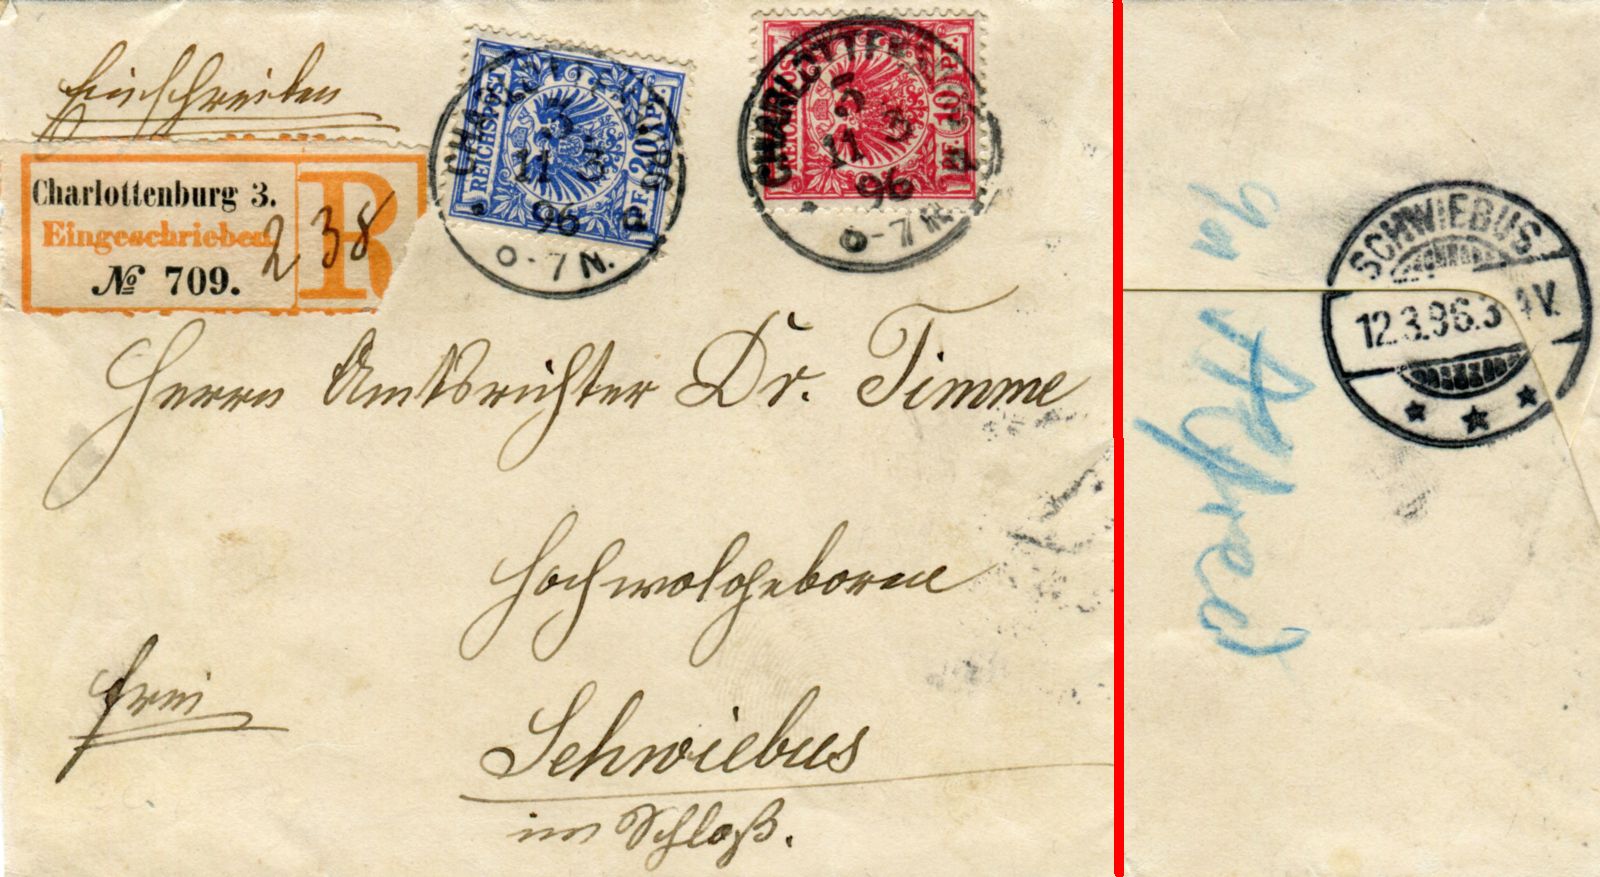 Einschreiben
Charlottenburg 3.
Eingeschrieben
№ 709.
R
238
REICHSPOST
20 PF.
CHARLOTTENBURG
3
11 3
96
6-7 N.
REICHSPOST
10 PF.
CHARLOTTENBURG
3
11 3
96
6-7 N.
Herrn Amtsrichter Dr. Timme
Hochwolgeboren
frei
Schwiebus
im Schloß.
SCHWIEBUS
12.3.96.3 4V.